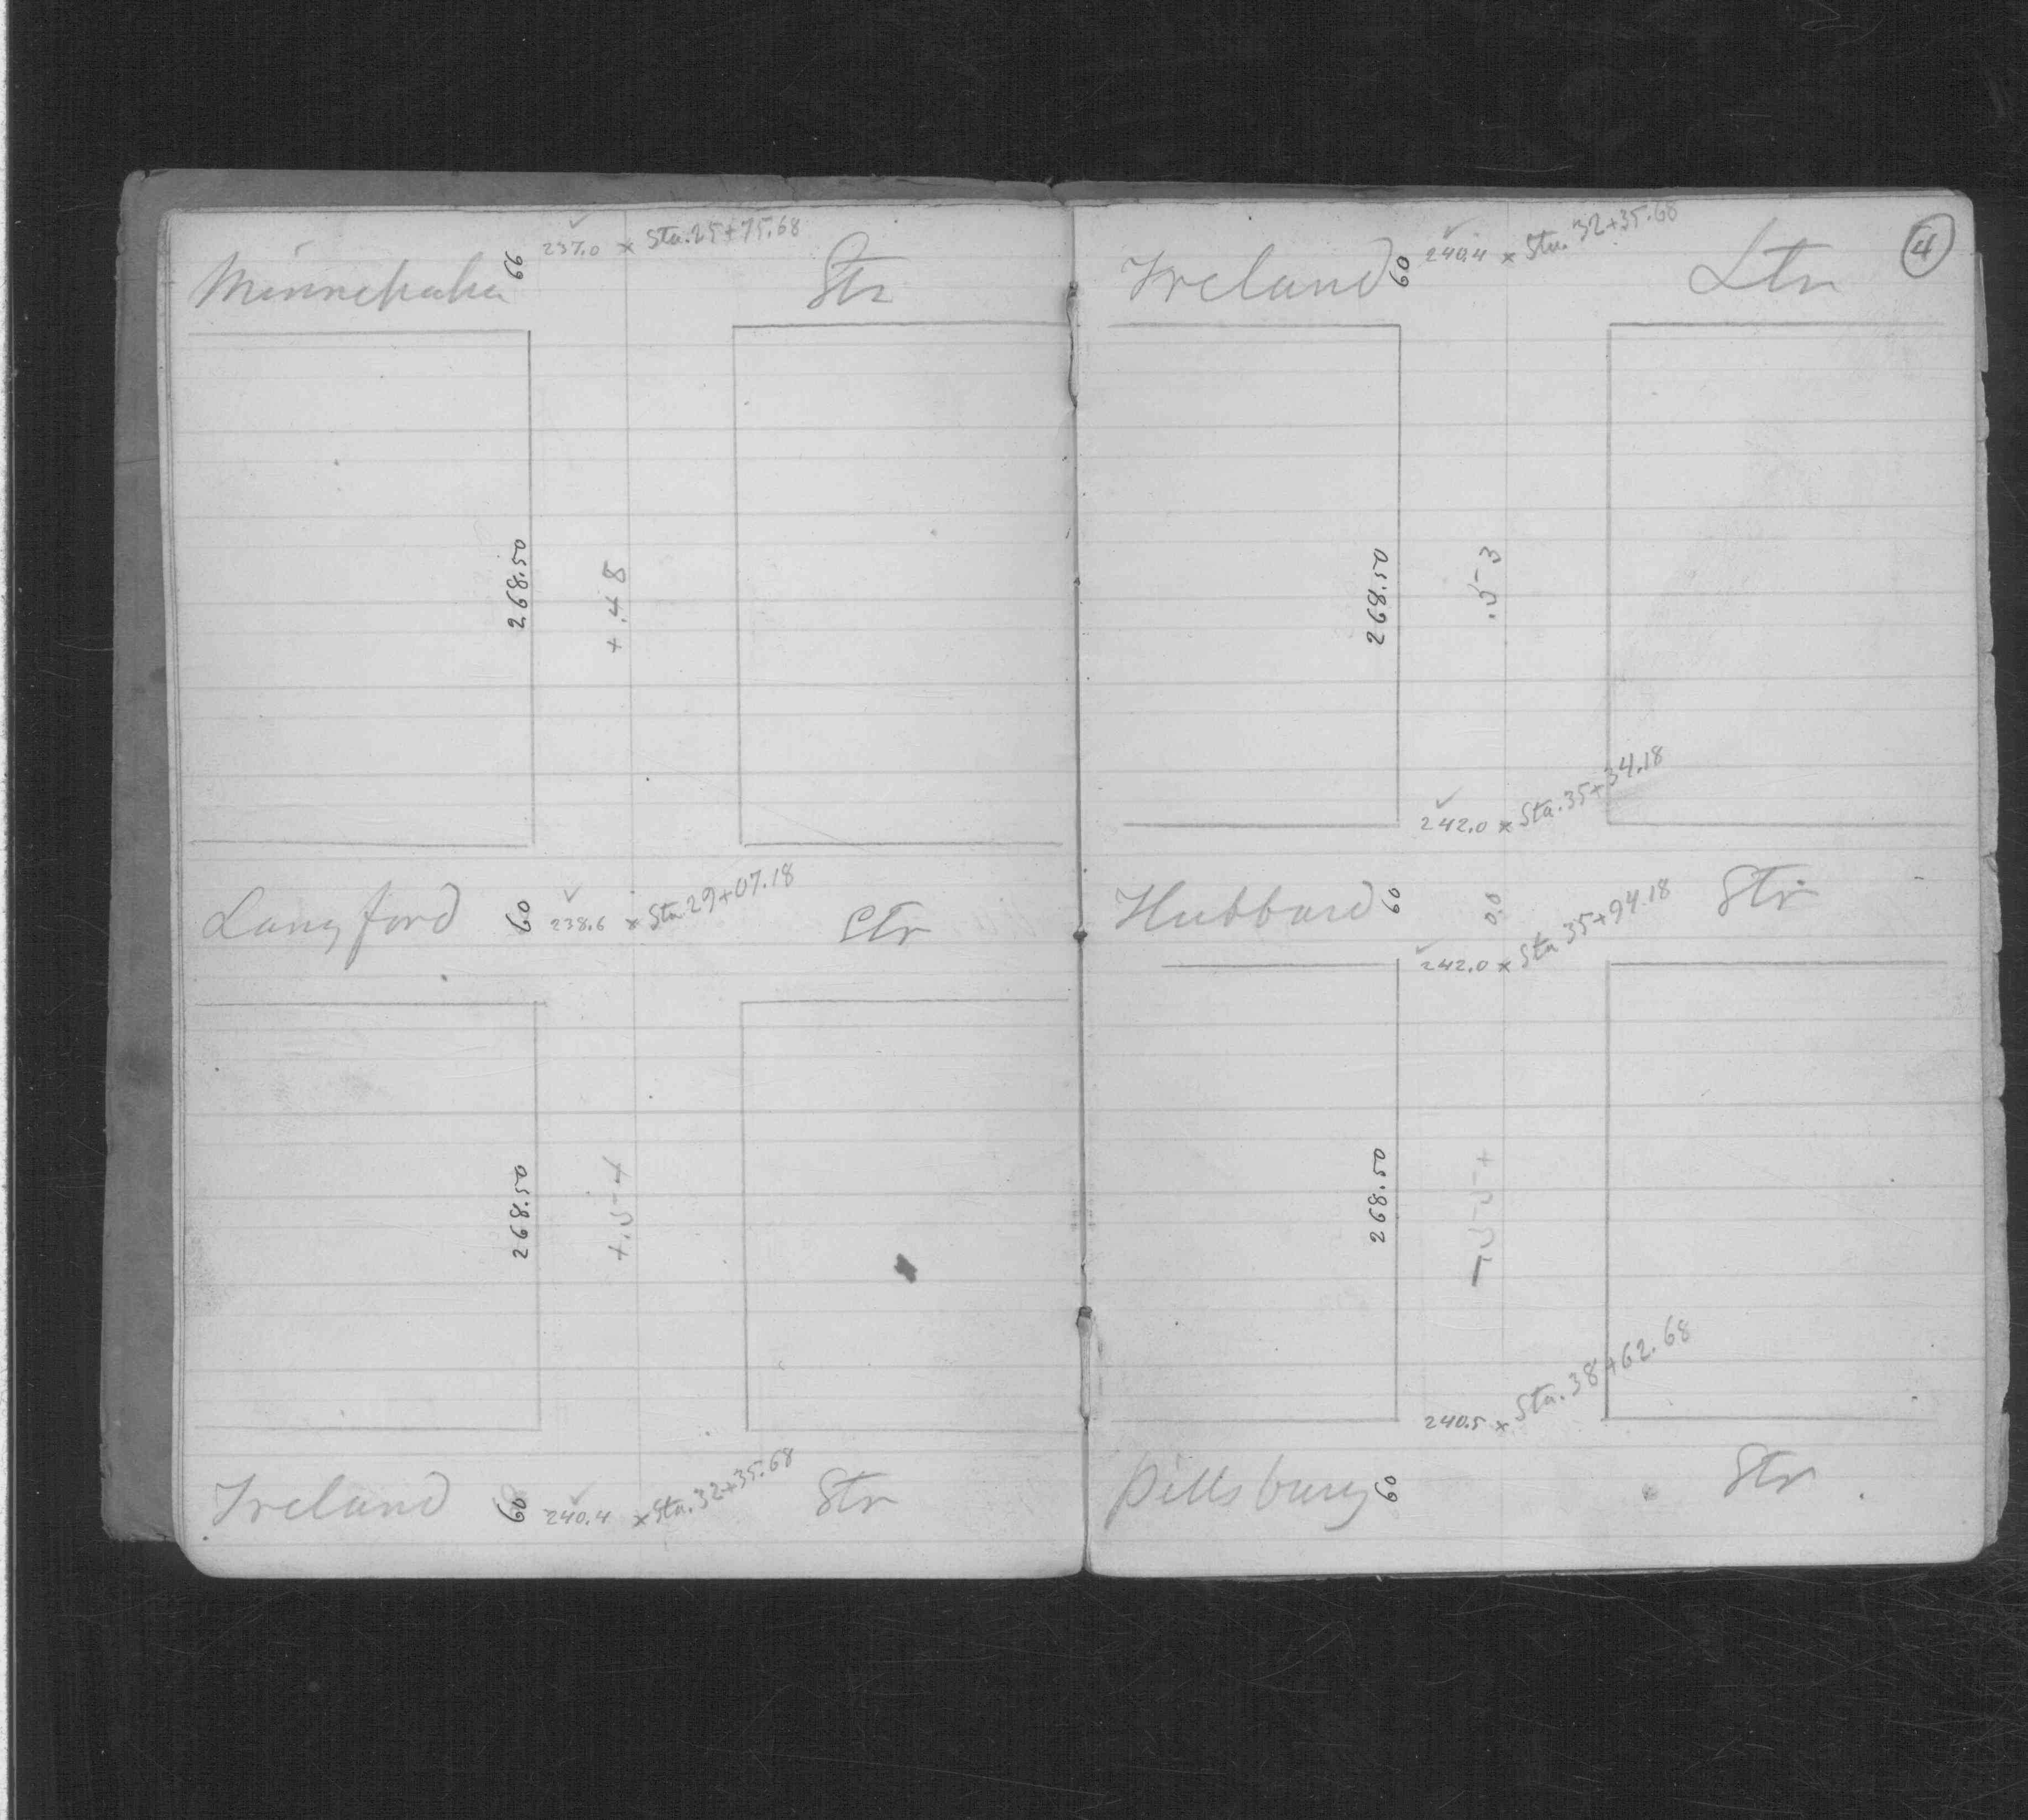 237.0 x Sta. 25+75.68
Minnehaha 66 Str
268.50
+.48
Langford 60 238.6 x Sta 29+07.18 Str
268.50
+.54
Ireland 60 240.4 x Sta. 32+35.68 Str
4
240.4 x Sta. 32+35.68
Ireland 60 Str
268.50
.53
242.0 x Sta. 35+34.18
Hubbard 60 0.0 Str
242.0 x Sta 35+94.18
268.50
240.5 x Sta. 38+62.68
Pillsbury 60 Str